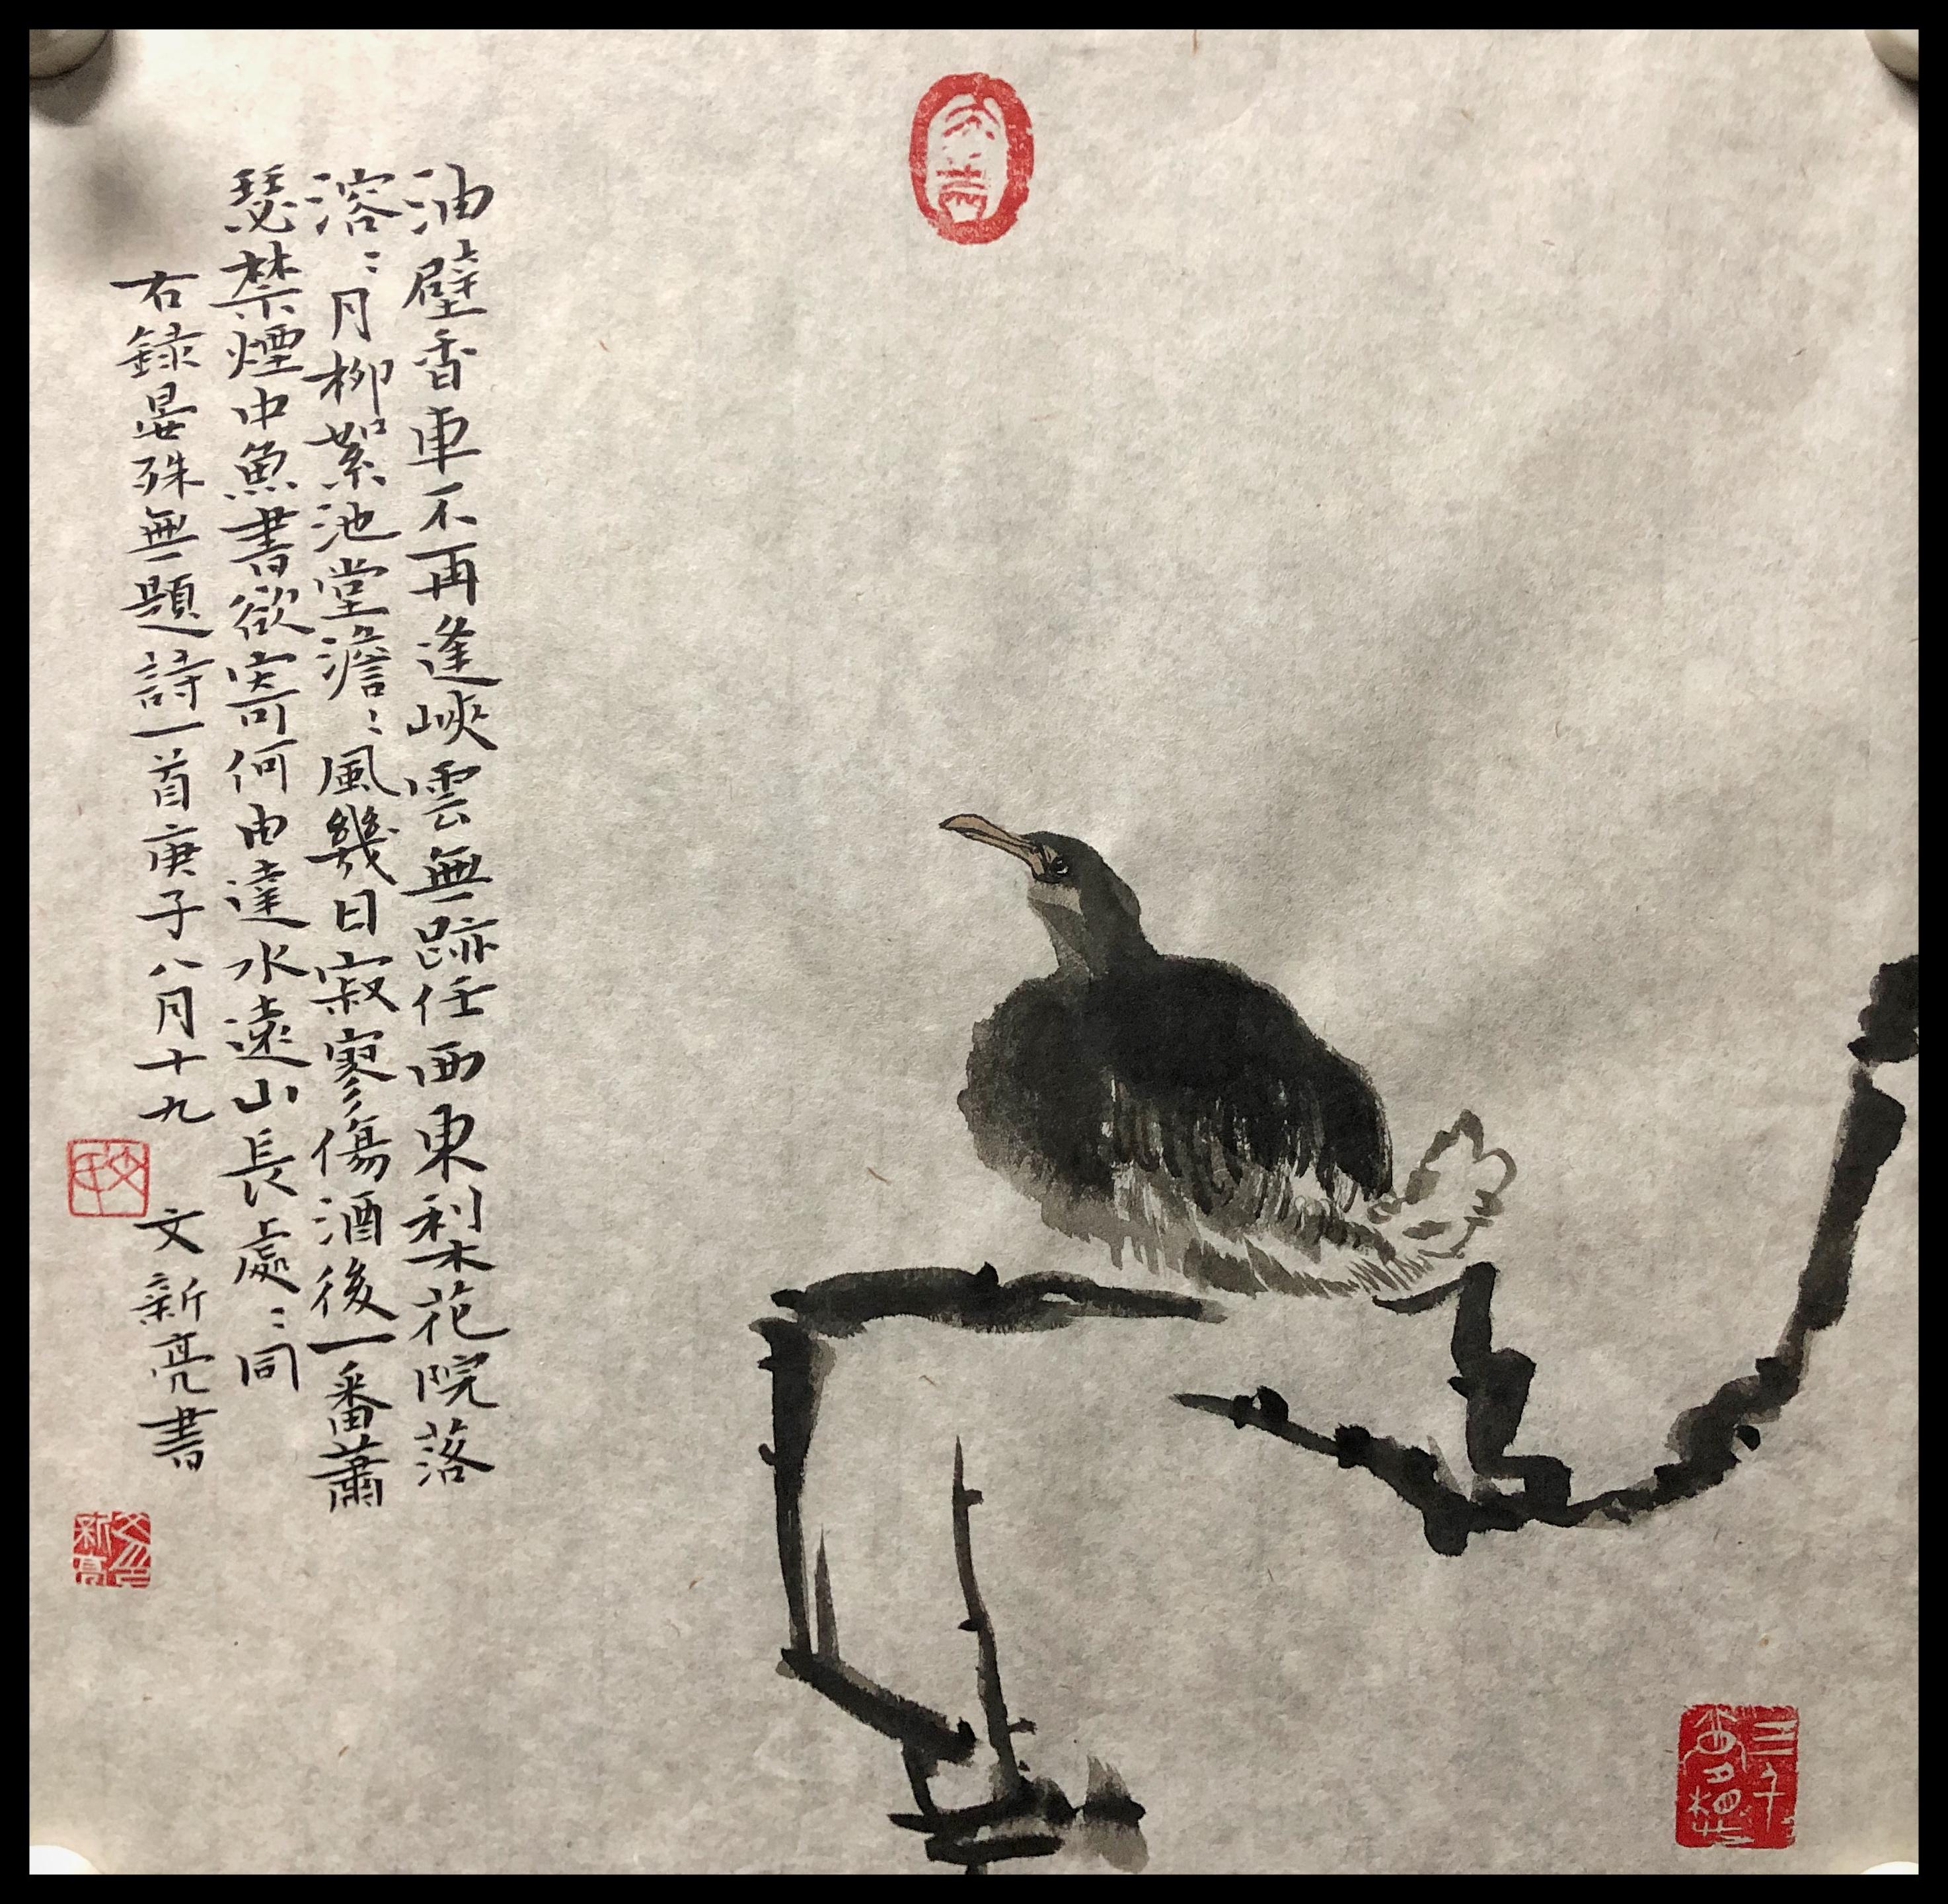 油壁香車不再逢峽雲無跡任西東梨花院落
溶〻月柳絮池堂澹〻風幾日寂寥傷酒後一番蕭
瑟禁煙中魚書欲寄何由達水遠山長處〻同
右録晏殊無題詩一首庚子八月十九　文新亮書